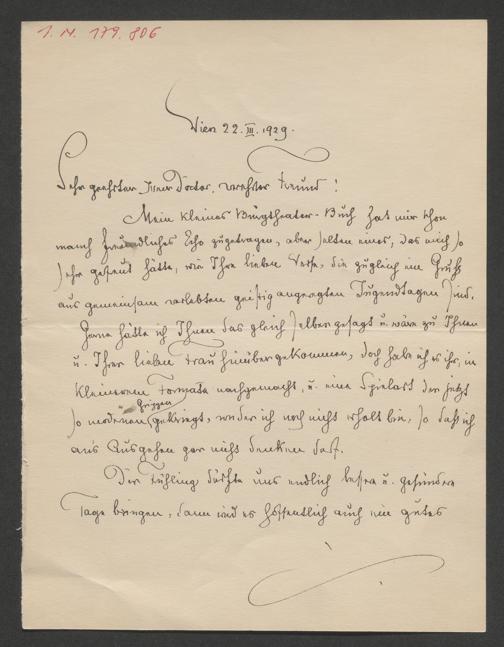 I. N. 179.806
Wien 22. III. 1929.
Sehr geehrter Herr Doctor, verehrter Freund!
Mein kleines Burgtheater-Buch hat mir schon
manch freundliches Echo zugetragen, aber selten eines, das mich so
sehr gefreut hätte, wie Ihre lieben Verse, die zugleich ein Gruß
aus gemeinsam verlebten geistig angeregten Jugendtagen sind.
Gerne hätte ich Ihnen das gleich selber gesagt u. wäre zu Ihnen
u. Ihrer lieben Frau hinübergekommen, doch habe ich es ihr, in
kleinerem Formate nachgemacht, u. eine Spielart der jetzt
so modernen Grippen gekriegt, von der ich noch nicht erholt bin, so daß ich
ans Ausgehen gar nicht denken darf.
Der Frühling dürfte uns endlich bessere u. gesündere
Tage bringen, dann wird es hoffentlich auch ein gutes